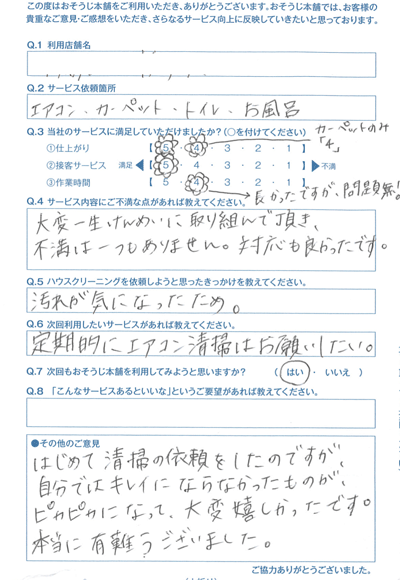 この度はおそうじ本舗をご利用いただき、ありがとうございます。おそうじ本舗では、お客様の
貴重なご意見・ご感想をいただき、さらなるサービス向上に反映していきたいと思っております。
Q.1 利用店舗名
Q.2 サービス依頼箇所
エアコン、カーペット・トイレ、お風呂
Q.3 当社のサービスに満足していただけましたか?(○を付けてください)
カーペットのみ
「4」
①仕上がり 【 5 ・ 4 ・ 3 ・ 2 ・ 1 】
②接客サービス 満足 【 5 ・ 4 ・ 3 ・ 2 ・ 1 】 不満
③作業時間 【 5 ・ 4 ・ 3 ・ 2 ・ 1 】
長かったですが、問題無!
Q.4 サービス内容にご不満な点があれば教えてください。
大変一生けんめいに取り組んで頂き、
不満は一つもありません。対応も良かったです。
Q.5 ハウスクリーニングを依頼しようと思ったきっかけを教えてください。
汚れが気になったため。
Q.6 次回利用したいサービスがあれば教えてください。
定期的にエアコン清掃はお願いしたい。
Q.7 次回もおそうじ本舗を利用してみようと思いますか? ( はい ・ いいえ )
Q.8 「こんなサービスあるといいな」というご要望があれば教えてください。
●その他のご意見
はじめて清掃の依頼をしたのですが、
自分ではキレイにならなかったものが、
ピカピカになって、大変嬉しかったです。
本当に有難うございました。
ご協力ありがとうございました。